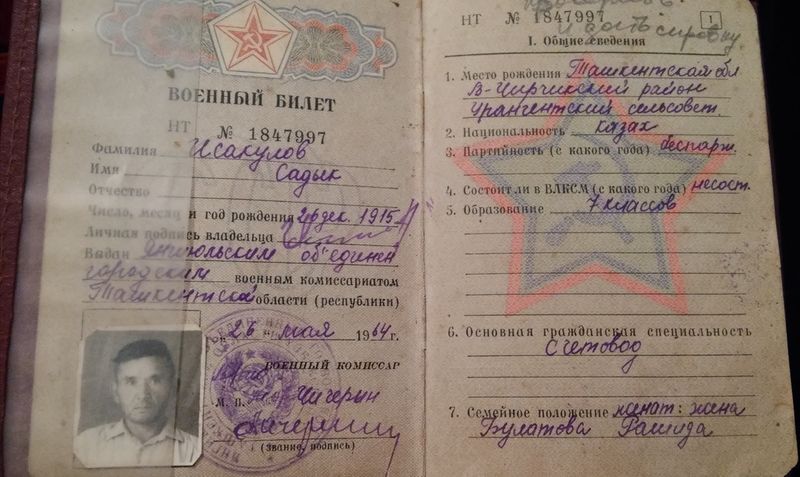 ВОЕННЫЙ БИЛЕТ
НТ № 1847997
Фамилия Исакулов
Имя Садык
Отчество
Число, месяц и год рождения 20 дек. 1915
Личная подпись владельца
Выдан Янгиюльским объединен
городским военным комиссариатом
Ташкентской области (республики)
„26" мая 1964 г.
ВОЕННЫЙ КОМИССАР
М. П. Чичерын
(звание, подпись)
НТ № 1847997
1
I. Общие сведения
1. Место рождения Ташкентская обл
В-Чирчикский район
Урангентский сельсовет.
2. Национальность казах
3. Партийность (с какого года) беспарт.
4. Состоит ли в ВЛКСМ (с какого года) несост.
5. Образование 7 классов
6. Основная гражданская специальность
Счетовод
7. Семейное положение женат: жена
Булатова Рашида